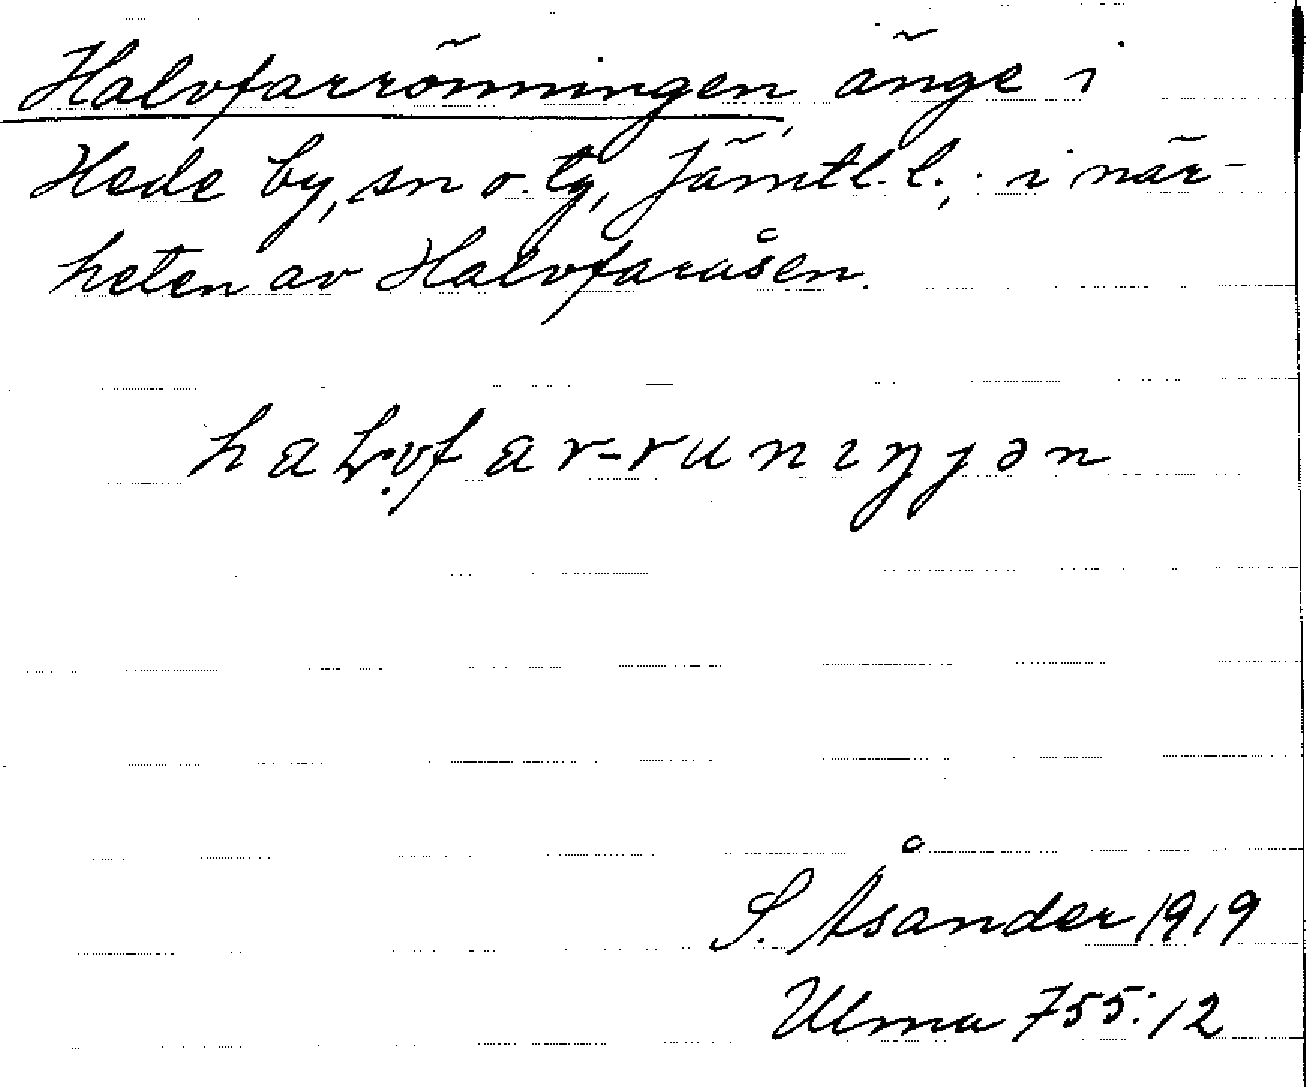 Halvfarrönningen änge i
Hede by, sn o. tg, Jämtl. l.; i när-
heten av Halvfaruåsen.
halvfar-runiŋjən
S. Åsander 1919
Ulma 755:12